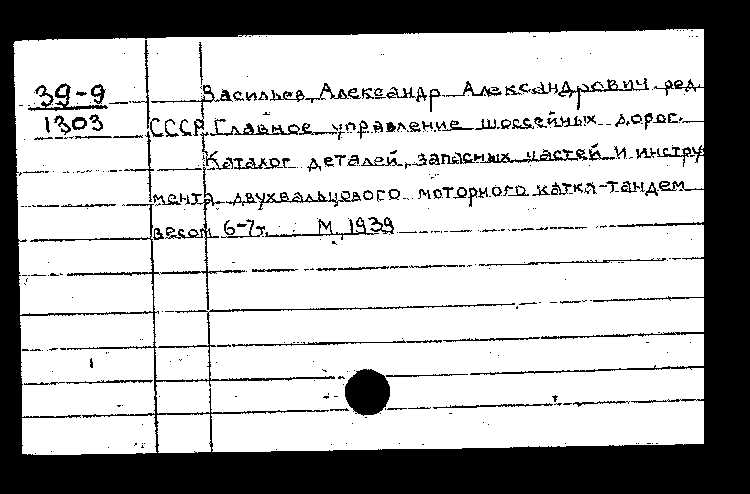 39-9
1303
Васильев, Александр Александрович ред.
СССР. Главное управление шоссейных дорог.
Каталог деталей, запасных частей и инстру
мента двухвальцового моторного катка-тандем
весом 6-7т. М. 1939